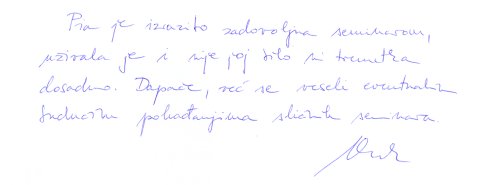 Pia je izrazito zadovoljna seminarom,
uživala je i nije joj bilo ni trenutka
dosadno. Dapače, već se veseli eventualnim
budućim pohađanjima sličnih seminara.